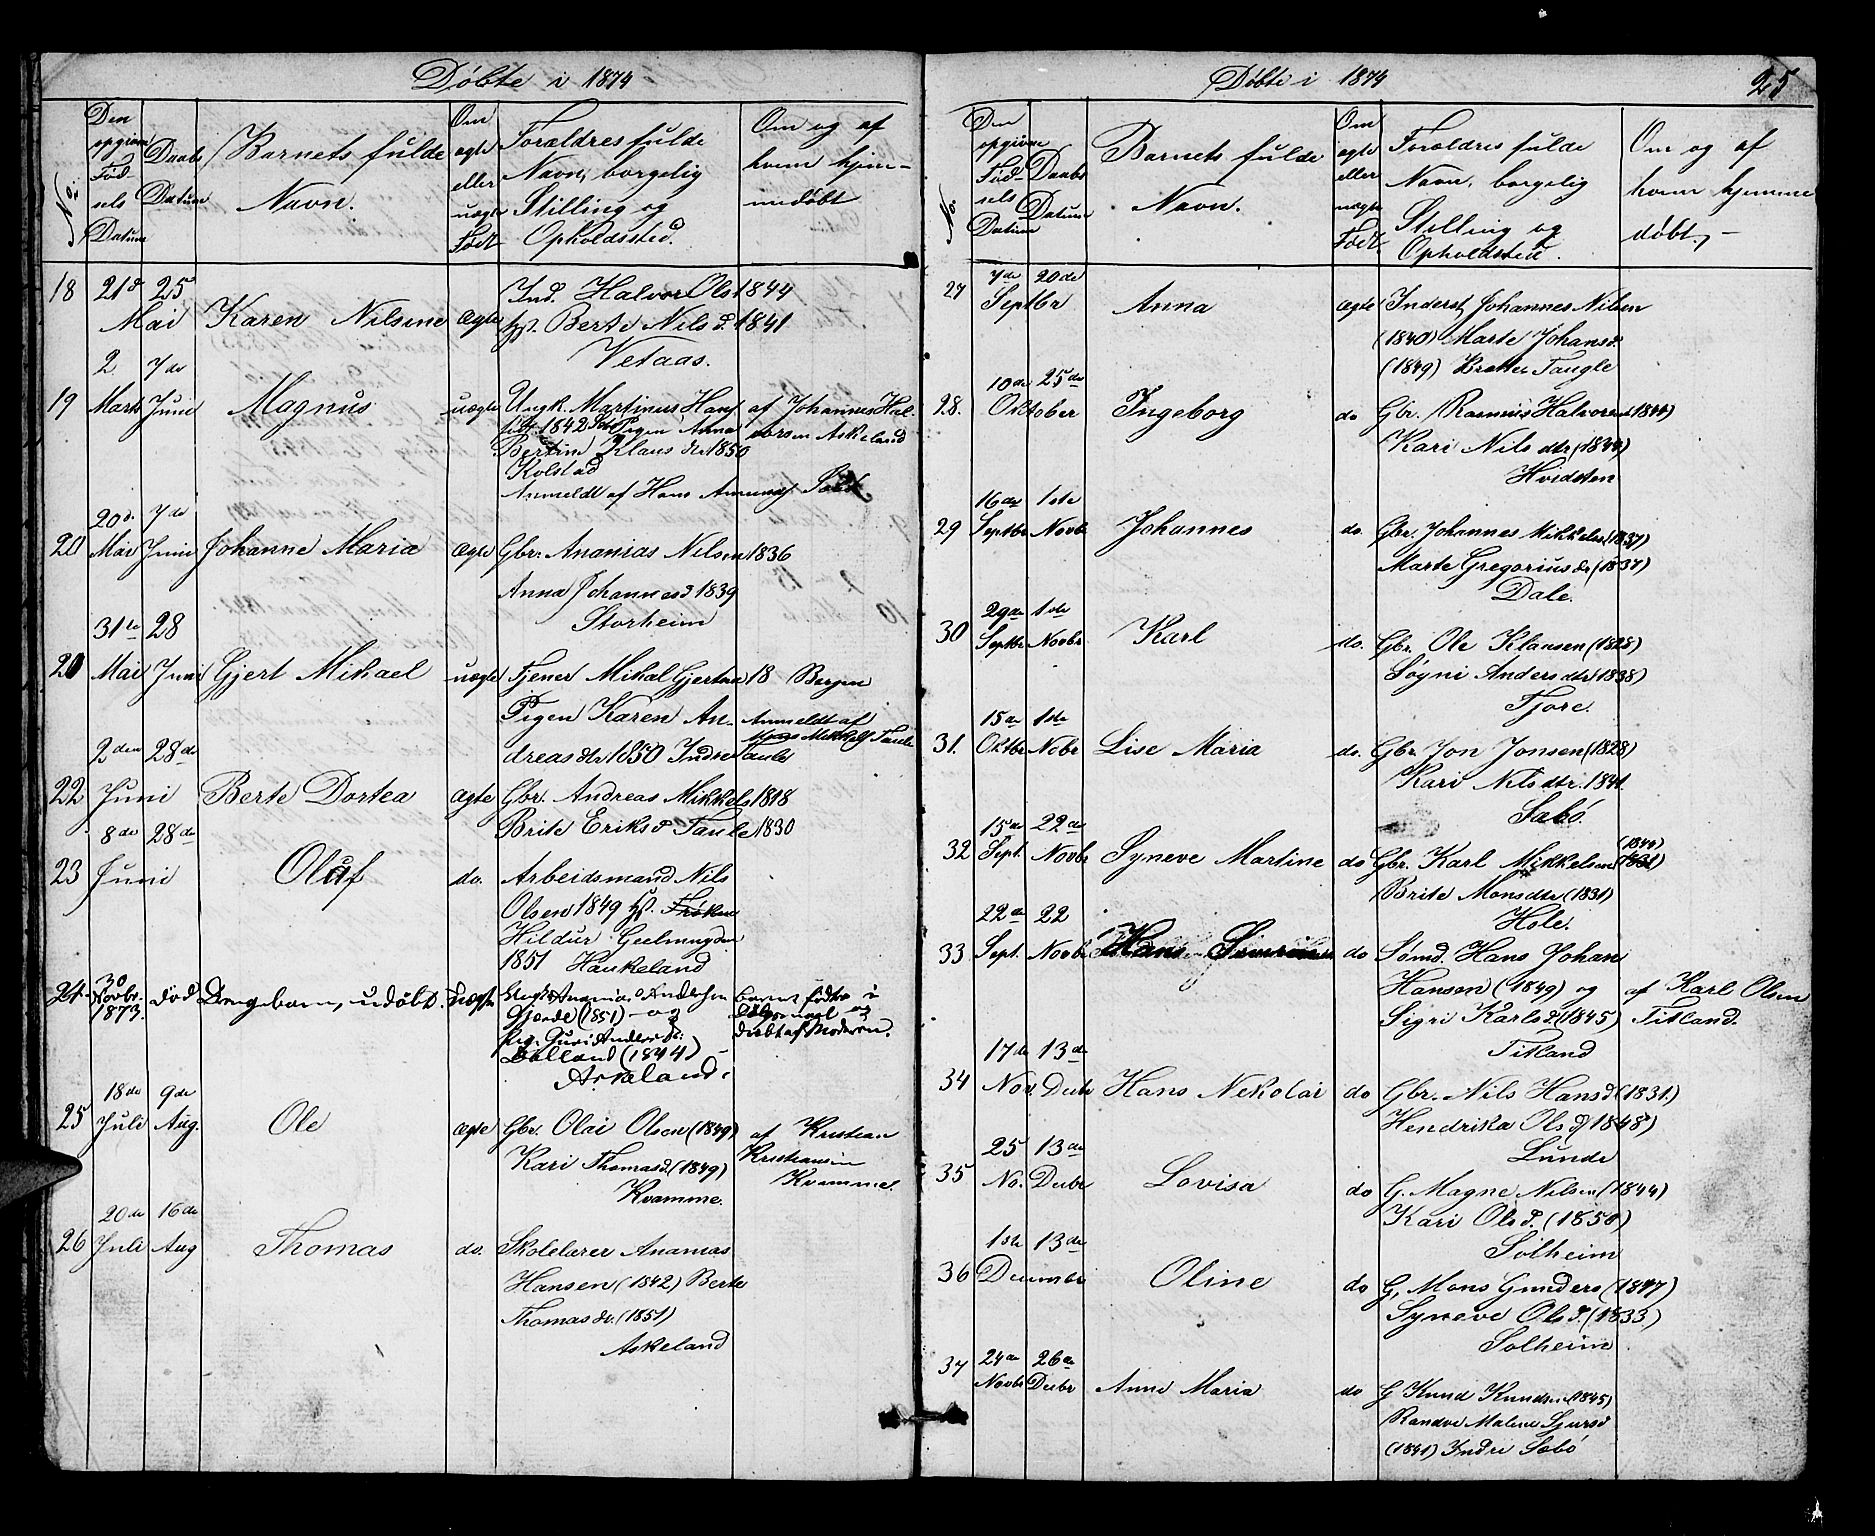 Döbte i 1874
No.
Den opgivne Födsels Datum
Daabs Datum
Barnets fulde Navn.
Om ægte eller uægte Födt
Forældres fulde Navn, borgelig Stilling og Opholdssted.
Om og af hvem hjemmedöbt
18 21d 25 Mai Karen Nilsine ægte Ind. Halvor Ols 1844
Berte Nilsd. 1841
Vetaas.
2 7de
19 Marts Juni Magnus uægte Ungk. Martinus Hans af Johannes Hal-
födt 1842 Pigen Anna vorsen Askeland
Bertine Klausdr 1850
Kolstad
Anmeldt af Hans Amunds
20d. 7de
20 Mai Juni Johanne Maria ægte Gbr. Ananias Nilsen 1836
Anna Johannesd 1839
Storheim
31te 28
21 Mai Juni Gjert Mikael uægte Tjener Mikal Gjertsen 18 Bergen
Pigen Karen An- Anmeldt af
dreasdr 1850 Indre Taule Mons Mikkels Taule
2den 28de
22 Juni Berte Dortea ægte Gbr. Andreas Mikkels 1818
Brite Eriksd Taule 1830
8de 28de
23 Juni Olaf do. Arbeidsmand Nils
Olsen 1849 Fröken
Hildur Geelmuyden
1851 Haukeland
24. 30 Novbr. 1873. död Drengebarn, udöbt. uægte Ungk. Ananias Andersen
Gjerde (1851) og
Pig. Guri Andersd:
Dalland (1844)
Askeland.
Barnet födtes i
og
döbt af Moderen.
18de 9de
25 Juli Aug. Ole ægte Gbr. Olai Olsen (1849) af Kristian
Kari Thomasd. (1849) Kristiansen
Kvamme. Kvamme.
20de 16de
26 Juli Aug Thomas do. Skolelærer Ananias
Hansen (1842) Berte
Thomasdr. (1851)
Askeland
Döbte i 1874 25
No.
Den opgivne Födsels Datum
Daabs Datum
Barnets fulde Navn.
Om ægte eller uægte Födt.
Forældres fulde Navn, borgelig Stilling og Opholdsted.
Om og af hvem hjemmedöbt,
7de 20de
27 Septbr Anna ægte Inderst Johannes Nilsen
(1840) Marte Johansd.
(1849) Tangle
10de 25de
28. Oktober Ingeborg do Gbr. Rasmus Halvorsen (1844)
Kari Nilsdtr (1844)
Hvidsten
16de 1ste
29 Septbr Novb. Johannes do. Gbr. Johannes Mikkelsen (1837)
Marte Gregoriusdr (1837)
Dale.
29de 1ste
30 Septbr Novbr Karl do. Gbr. Ole Klausen (1828)
Søgni Andersdtr (1838)
Fjore.
15de 1ste
31. Oktbr Nobr Lise Maria do. Gbr Jon Jonsen (1828)
Kari Nilsdtr. 1841.
Sæbö
15de 22de
32 Sept. Novbr Syneve Martine do Gbr. Karl Mikkelsen (1844)
Brite Monsdtr (1831)
Hole.
22de 22
33 Sept. Novbr Hans do Sömd. Hans Johan
Hansen (1849) og af Karl Olsen
Sigri Karlsd. (1845) Titland.
Titland
17de 13de
34 Nov. Decbr Hans Nekolai do Gbr. Nils Hansd (1831.)
Hendrika Olsd (1848)
Lunde
25 13de
35 No. Decbr Lovisa do G. Magne Nilsen (1844)
Kari Olsd. (1850)
Solheim
1ste 13de
36 December Oline do G, Mons Gunders (1847)
Syneve Olsd. (1833)
Solheim
24de 26de
37 Novbr Decbr Anne Maria do G Knud Knudsen (1845)
Randve Malene Sjursd
(1841) Indre Sæbö